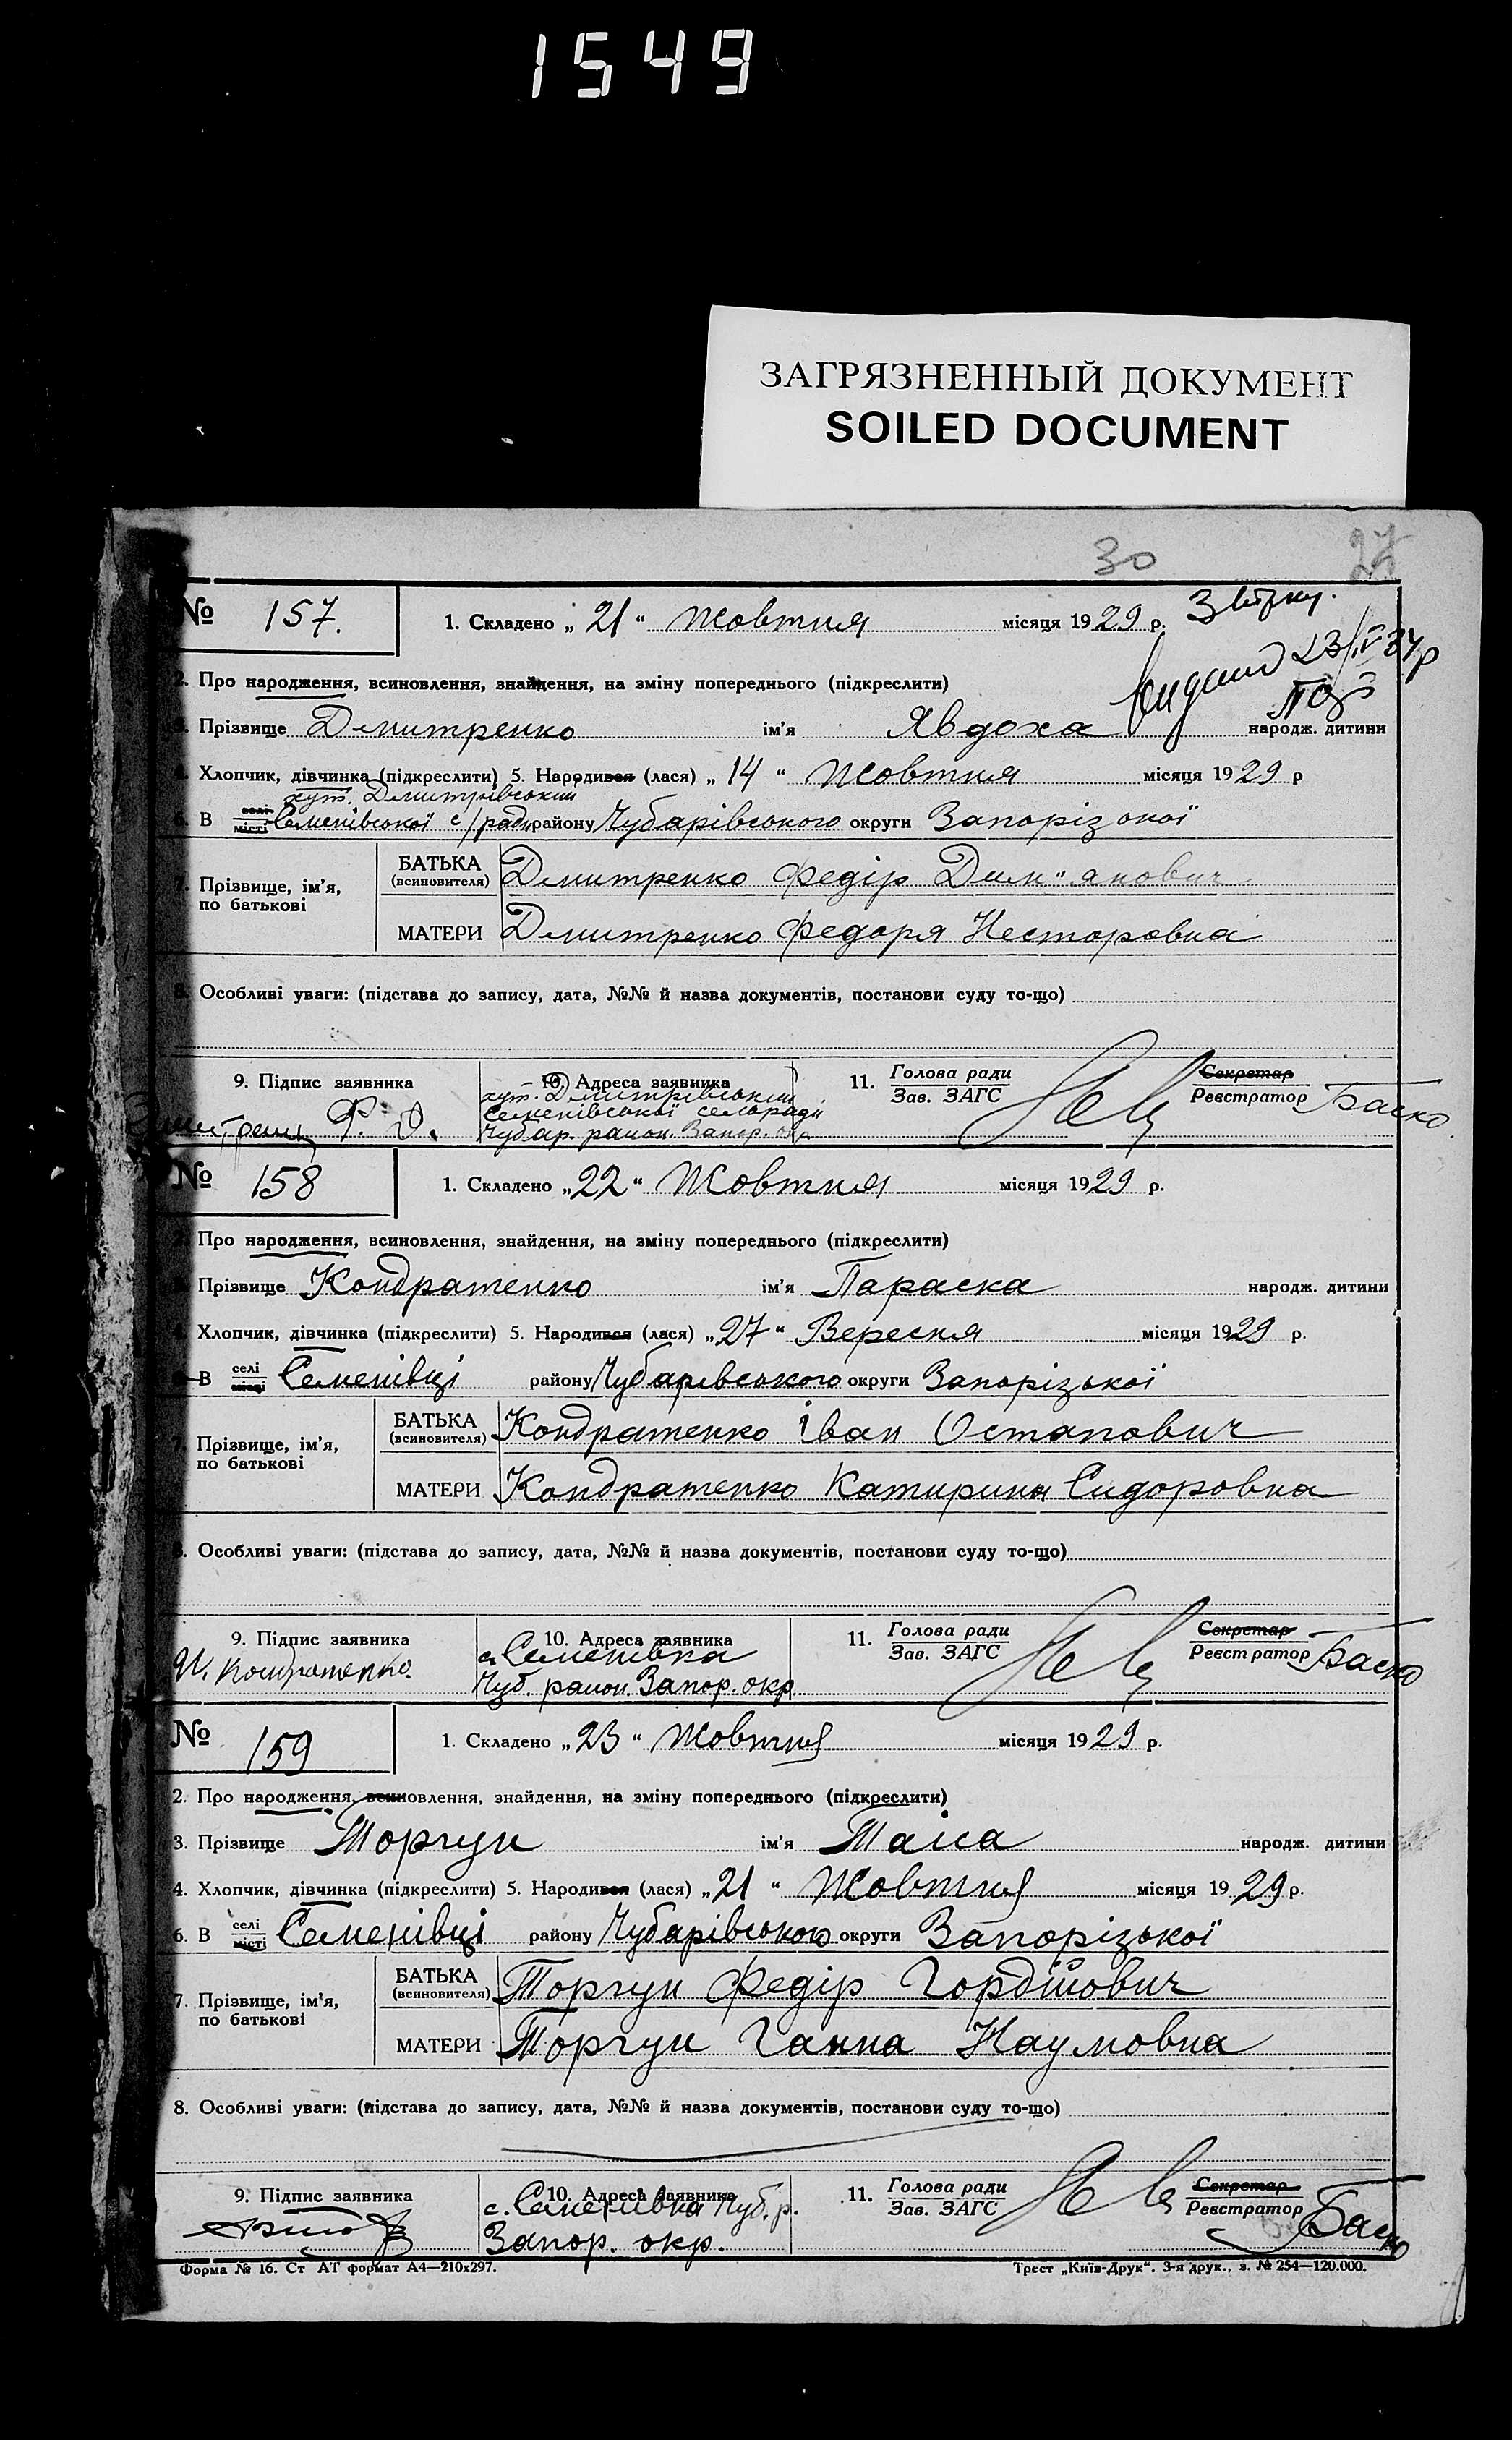 1549
ЗАГРЯЗНЕННЫЙ ДОКУМЕНТ
SOILED DOCUMENT
30 27
№ 157. 1. Складено „21“ Жовтня місяця 1929 р.
видано 23/IV 34р
2. Про народження, всиновлення, знайдення, на зміну попереднього (підкреслити)
3. Прізвище Дмитренко ім'я Явдоха народж. дитини
4. Хлопчик, дівчинка (підкреслити) 5. Народився (лася) „14“ Жовтня місяця 1929 р
хут. Дмитрівський
6. В селі місті Семенівської с/ради району Чубарівського округи Запорізької
7. Прізвище, ім'я, по батькові БАТЬКА (всиновителя) Дмитренко Федір Дем"янович
МАТЕРИ Дмитренко Федоря Несторовна
8. Особливі уваги: (підстава до запису, дата, №№ й назва документів, постанови суду то-що)
9. Підпис заявника 10. Адреса заявника 11. Голова ради Зав. ЗАГС Секретар Реєстратор Баско
хут. Дмитрівський
Семенівської сельради
Чубар. район. Запор. окр
№ 158 1. Складено „22“ Жовтня місяця 1929 р.
Про народження, всиновлення, знайдення, на зміну попереднього (підкреслити)
Прізвище Кондратенко ім'я Параска народж. дитини
Хлопчик, дівчинка (підкреслити) 5. Народився (лася) „27“ Вересня місяця 1929 р.
В селі місті Семенівці району Чубарівського округи Запорізької
7. Прізвище, ім'я, по батькові БАТЬКА (всиновителя) Кондратенко Іван Остапович
МАТЕРИ Кондратенко Катирина Сидоровна
Особливі уваги: (підстава до запису, дата, №№ й назва документів, постанови суду то-що)
9. Підпис заявника 10. Адреса заявника 11. Голова ради Зав. ЗАГС Секретар Реєстратор Баско
И. Кондратенко. с. Семенівка
Чуб. район. Запор. окр
№ 159 1. Складено „23“ Жовтня місяця 1929 р.
2. Про народження, всиновлення, знайдення, на зміну попереднього (підкреслити)
3. Прізвище Торгун ім'я Таїса народж. дитини
4. Хлопчик, дівчинка (підкреслити) 5. Народився (лася) „21“ Жовтня місяця 1929 р.
6. В селі місті Семенівці району Чубарівського округи Запорізької
7. Прізвище, ім'я, по батькові БАТЬКА (всиновителя) Торгун Федір Гордійович
МАТЕРИ Торгун Ганна Наумовна
8. Особливі уваги: (підстава до запису, дата, №№ й назва документів, постанови суду то-що)
9. Підпис заявника 10. Адреса заявника 11. Голова ради Зав. ЗАГС Секретар Реєстратор Баско
с. Семенівка Чуб. р.
Запор. окр.
Форма № 16. Ст АТ формат А4—210x297. Трест „Київ-Друк“. 3-я друк., з. № 254—120.000.